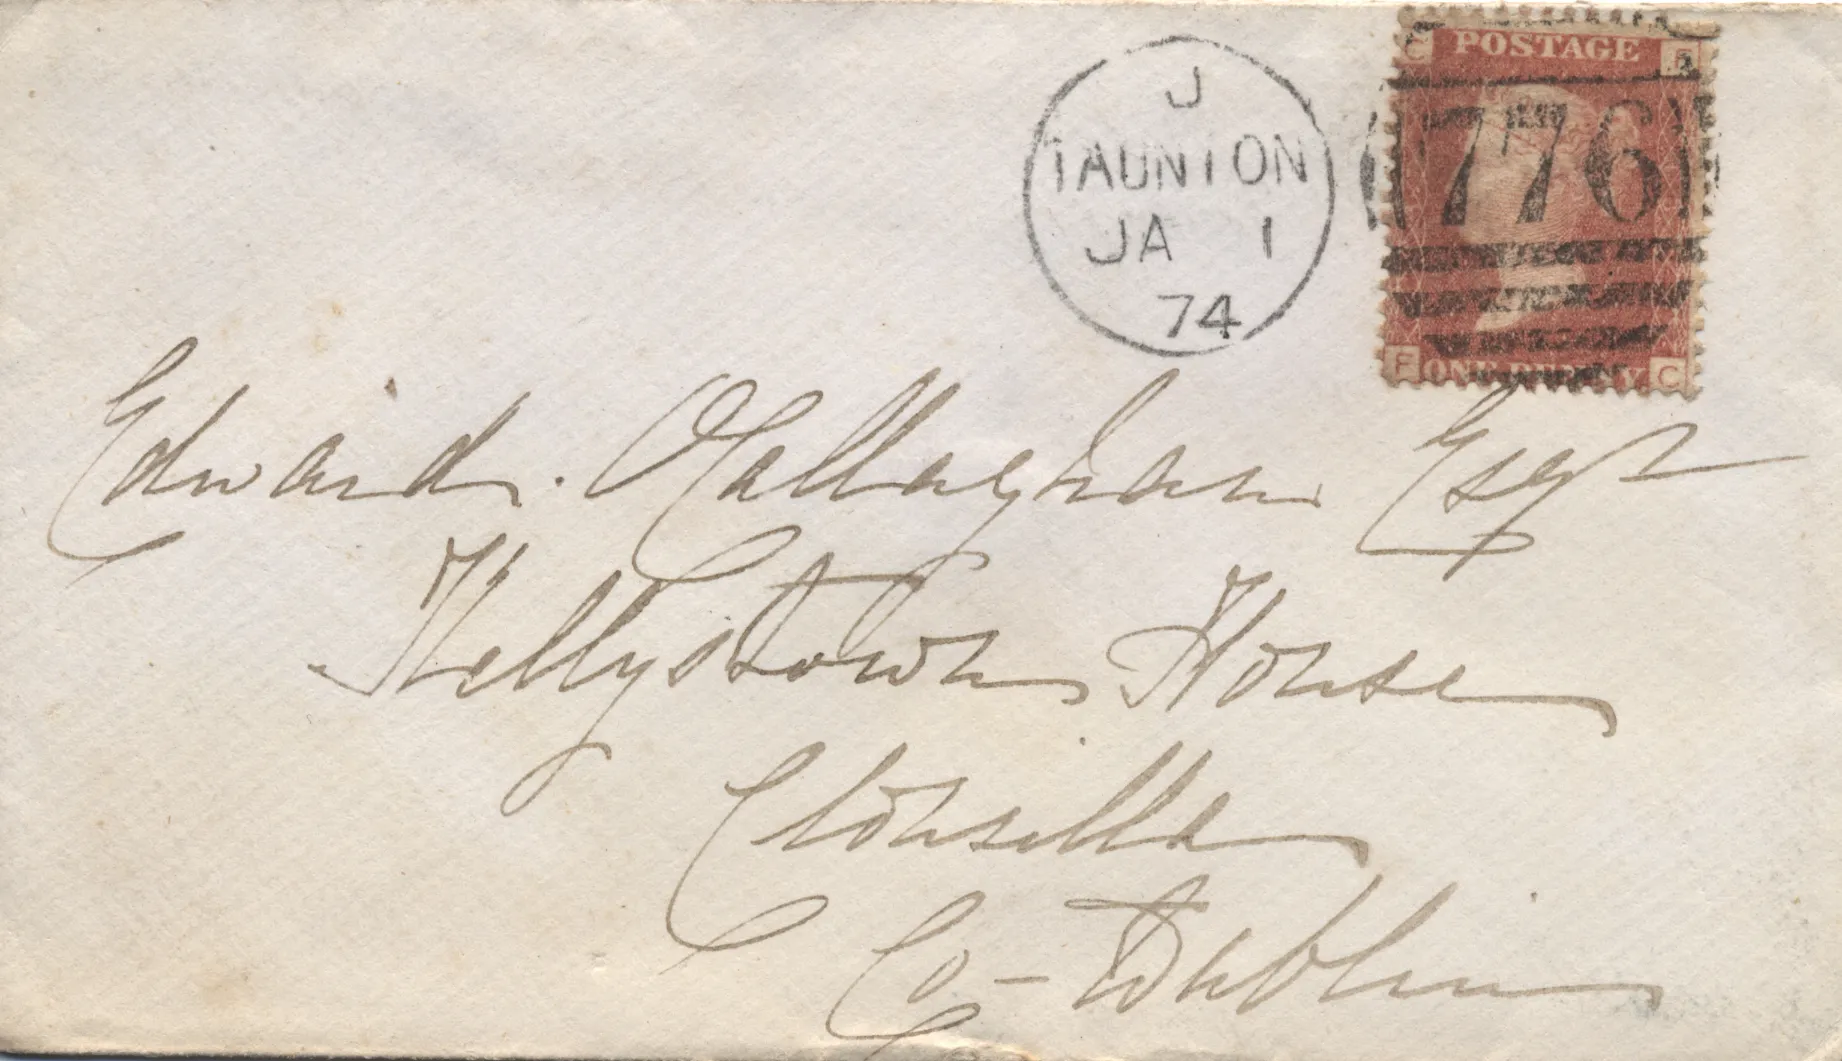 J
TAUNTON
JA 1
74
POSTAGE
776
F ONE PENNY C
Edward O'Callaghan Esqr
Kellystown House
Clonsilla
Co- Dublin